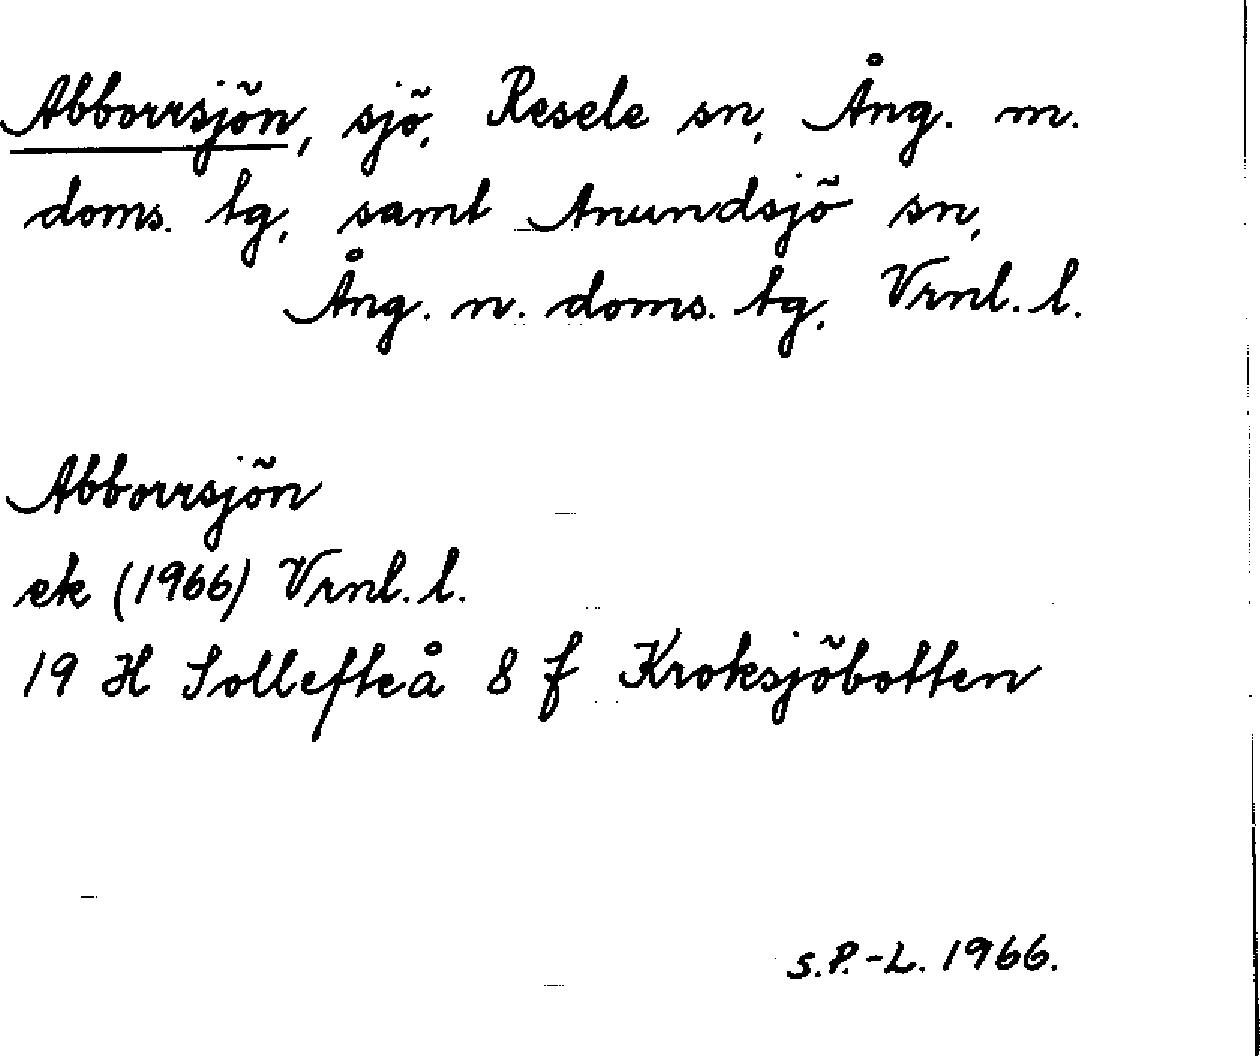 Abborrsjön, sjö, Resele sn, Ång. m.
doms. tg, samt Anundsjö sn,
Ång. n. doms. tg, Vrnl. l.
Abborrsjön
ek (1966) Vrnl. l.
19 H Sollefteå 8 f Kroksjöbotten
s.P.-L. 1966.